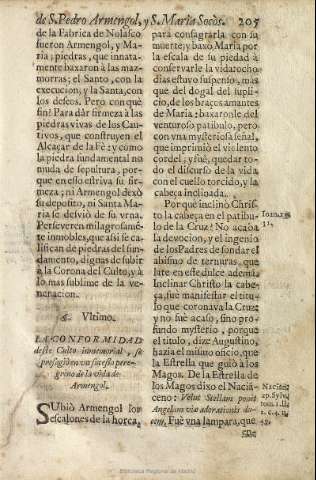 de S. Pedro Armengol, y S. Maria Socòs. 205
de la Fabrica de Nolasco
fueron Armengol, y Ma-
ria; piedras, que innata-
mente baxaron à las maz-
morras; el Santo, con la
execucion, y la Santa, con
los deseos. Pero con què
fin? Para dàr firmeza à las
piedras vivas de los Cau-
tivos, que construyen el
Alcaçar de la Fè; y como
la piedra fundamental no
muda de sepultura, por-
que en esso estriva su fir-
meza; ni Armengol dexò
su deposito, ni Santa Ma-
ria se desviò de su vrna.
Perseveren milagrosamē-
te inmobles, que assi se ca-
lifican de piedras del fun-
damento, dignas de subir
à la Corona del Culto, y à
lo mas sublime de la ve-
neracion.
§. Vltimo.
LA CONFORMIDAD
deste Culto inmemorial, se
prosiguiò en sucesso pere-
grino de la vida de
Armengol.
SUbiò Armengol los
escalones de la horca,
para consagrarla con su
muerte; baxò Maria por
la escala de su piedad à
conservarle la vida: ocho
dias estuvo suspenso, mas
que del dogal del supli-
cio, de los braços amantes
de Maria: baxaronle del
venturoso patibulo, pero
con vna mysteriosa señal,
que imprimiò el violento
cordel, y fuè, quedar to-
do el discurso de la vida
con el cuello torcido, y la
cabeça inclinada.
Por què inclinò Chris-
to la cabeça en el patibu-
lo de la Cruz? No acaba
la devocion, y el ingenio
de los Padres de sondar el
abismo de ternuras, que
late en este dulce ademã.
Inclinar Christo la cabe-
ça, fuè manifestar el titu-
lo que coronava la Cruz
y no fue acaso, sino pro-
fundo mysterio, porque
el titulo, dize Augustino,
hazia el mismo oficio, que
la Estrella que guiò à los
Magos. De la Estrella de
los Magos dixo el Nacia-
ceno: Velut Stellam ponit
Angelum via adorationis du-
cem. Fuè vna lampara, que
Ioan. 19
Biblioteca Regional de Madrid